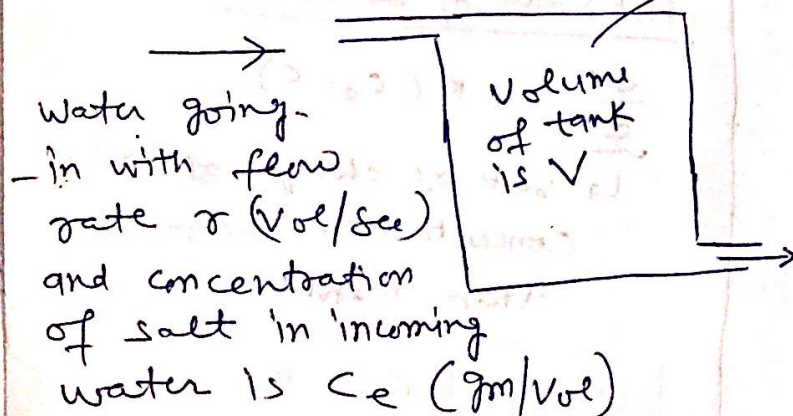 Water going-
-in with flow
rate r (Vol/sec)
and concentration
of salt in incoming
water is Ce (gm/Vol)
Volume
of tank
is V